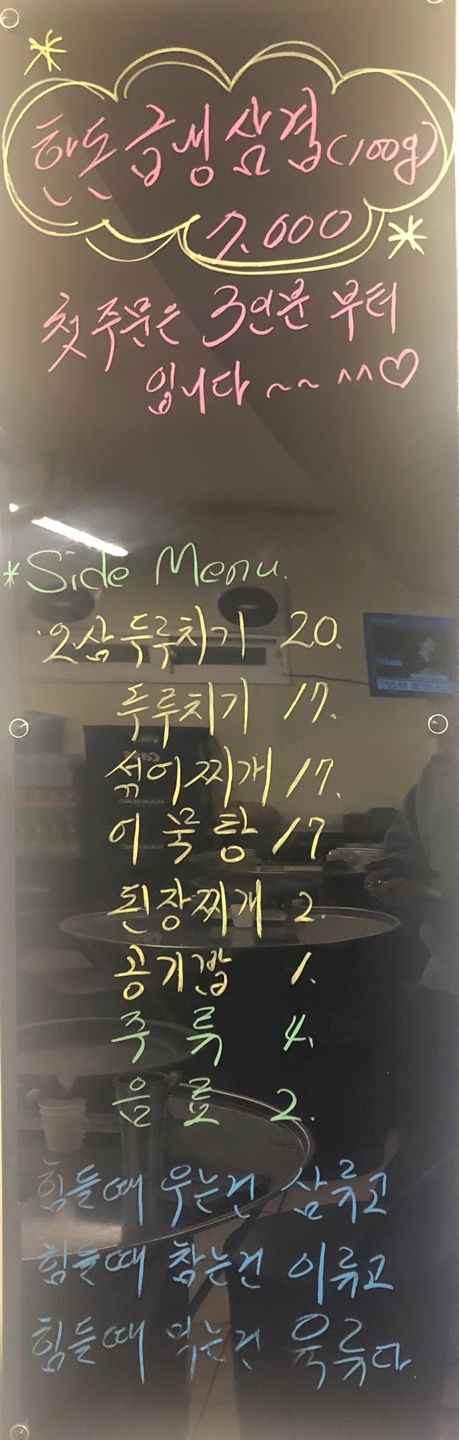 한돈 급냉삼겹(100g)
7.000
첫 주문은 3인분 부터
입니다 ~~ ^^♡
*Side Menu.
오삼두루치기 20.
두루치기 17.
섞어찌개 17.
어묵탕 17
된장찌개 2.
공기밥 1.
주류 4.
음료 2.
힘들때 우는건 삼류고
힘들때 참는건 이류고
힘들때 먹는건 육류다.